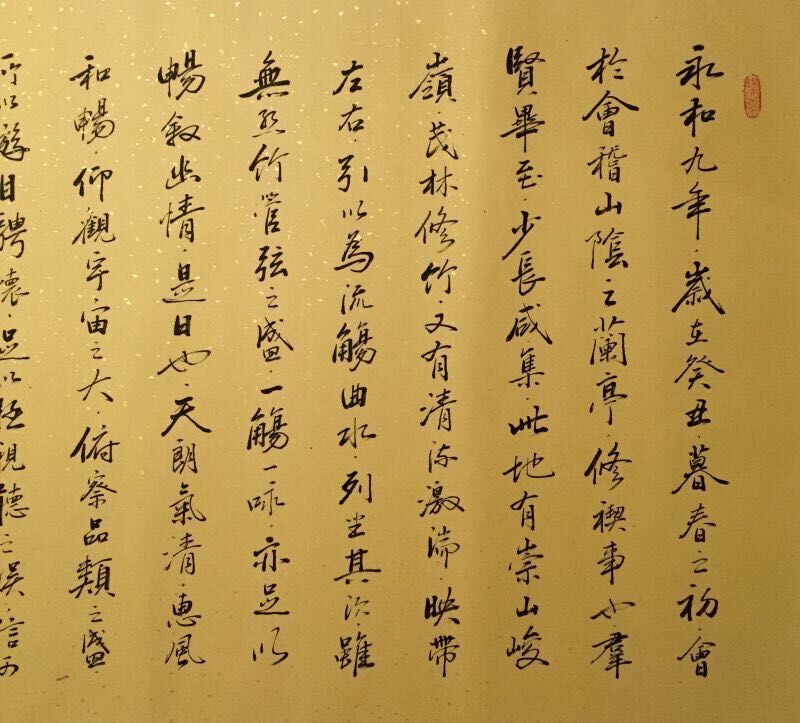 永和九年·歲在癸丑·暮春之初·會
於會稽山陰之蘭亭·修禊事也·羣
賢畢至·少長咸集·此地有崇山峻
嶺·茂林修竹·又有清流激湍·映帶
左右·引以為流觴曲水·列坐其次·雖
無絲竹管弦之盛·一觴一詠·亦足以
暢敘幽情·是日也·天朗氣清·惠風
和暢·仰觀宇宙之大·俯察品類之盛
所以遊目騁懷·足以極視聽之娛·信可